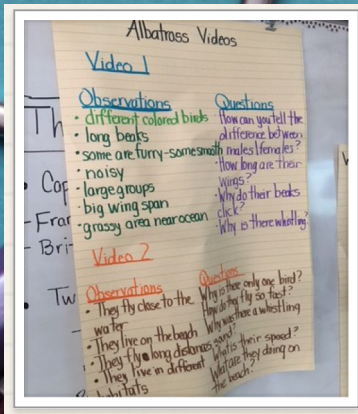 Albatross Videos
Video 1
Observations
• different colored birds
• long beaks
• some are furry-some smooth
• noisy
• large groups
• big wing span
• grassy area near ocean
Questions
•How can you tell the
difference between
males/females?
•How long are their
wings?
•Why do their beaks
click?
•Why is there whistling?
Video 2
Observations
• They fly close to the
water
• They live on the beach
• They fly long distances
• They live in different
habitats
Questions
Why is there only one bird?
How do they fly so fast?
Why was there a whistling
sound?
What is their speed?
What are they doing on
the beach?
Th
•
-Fran
-Bri-
• Tw